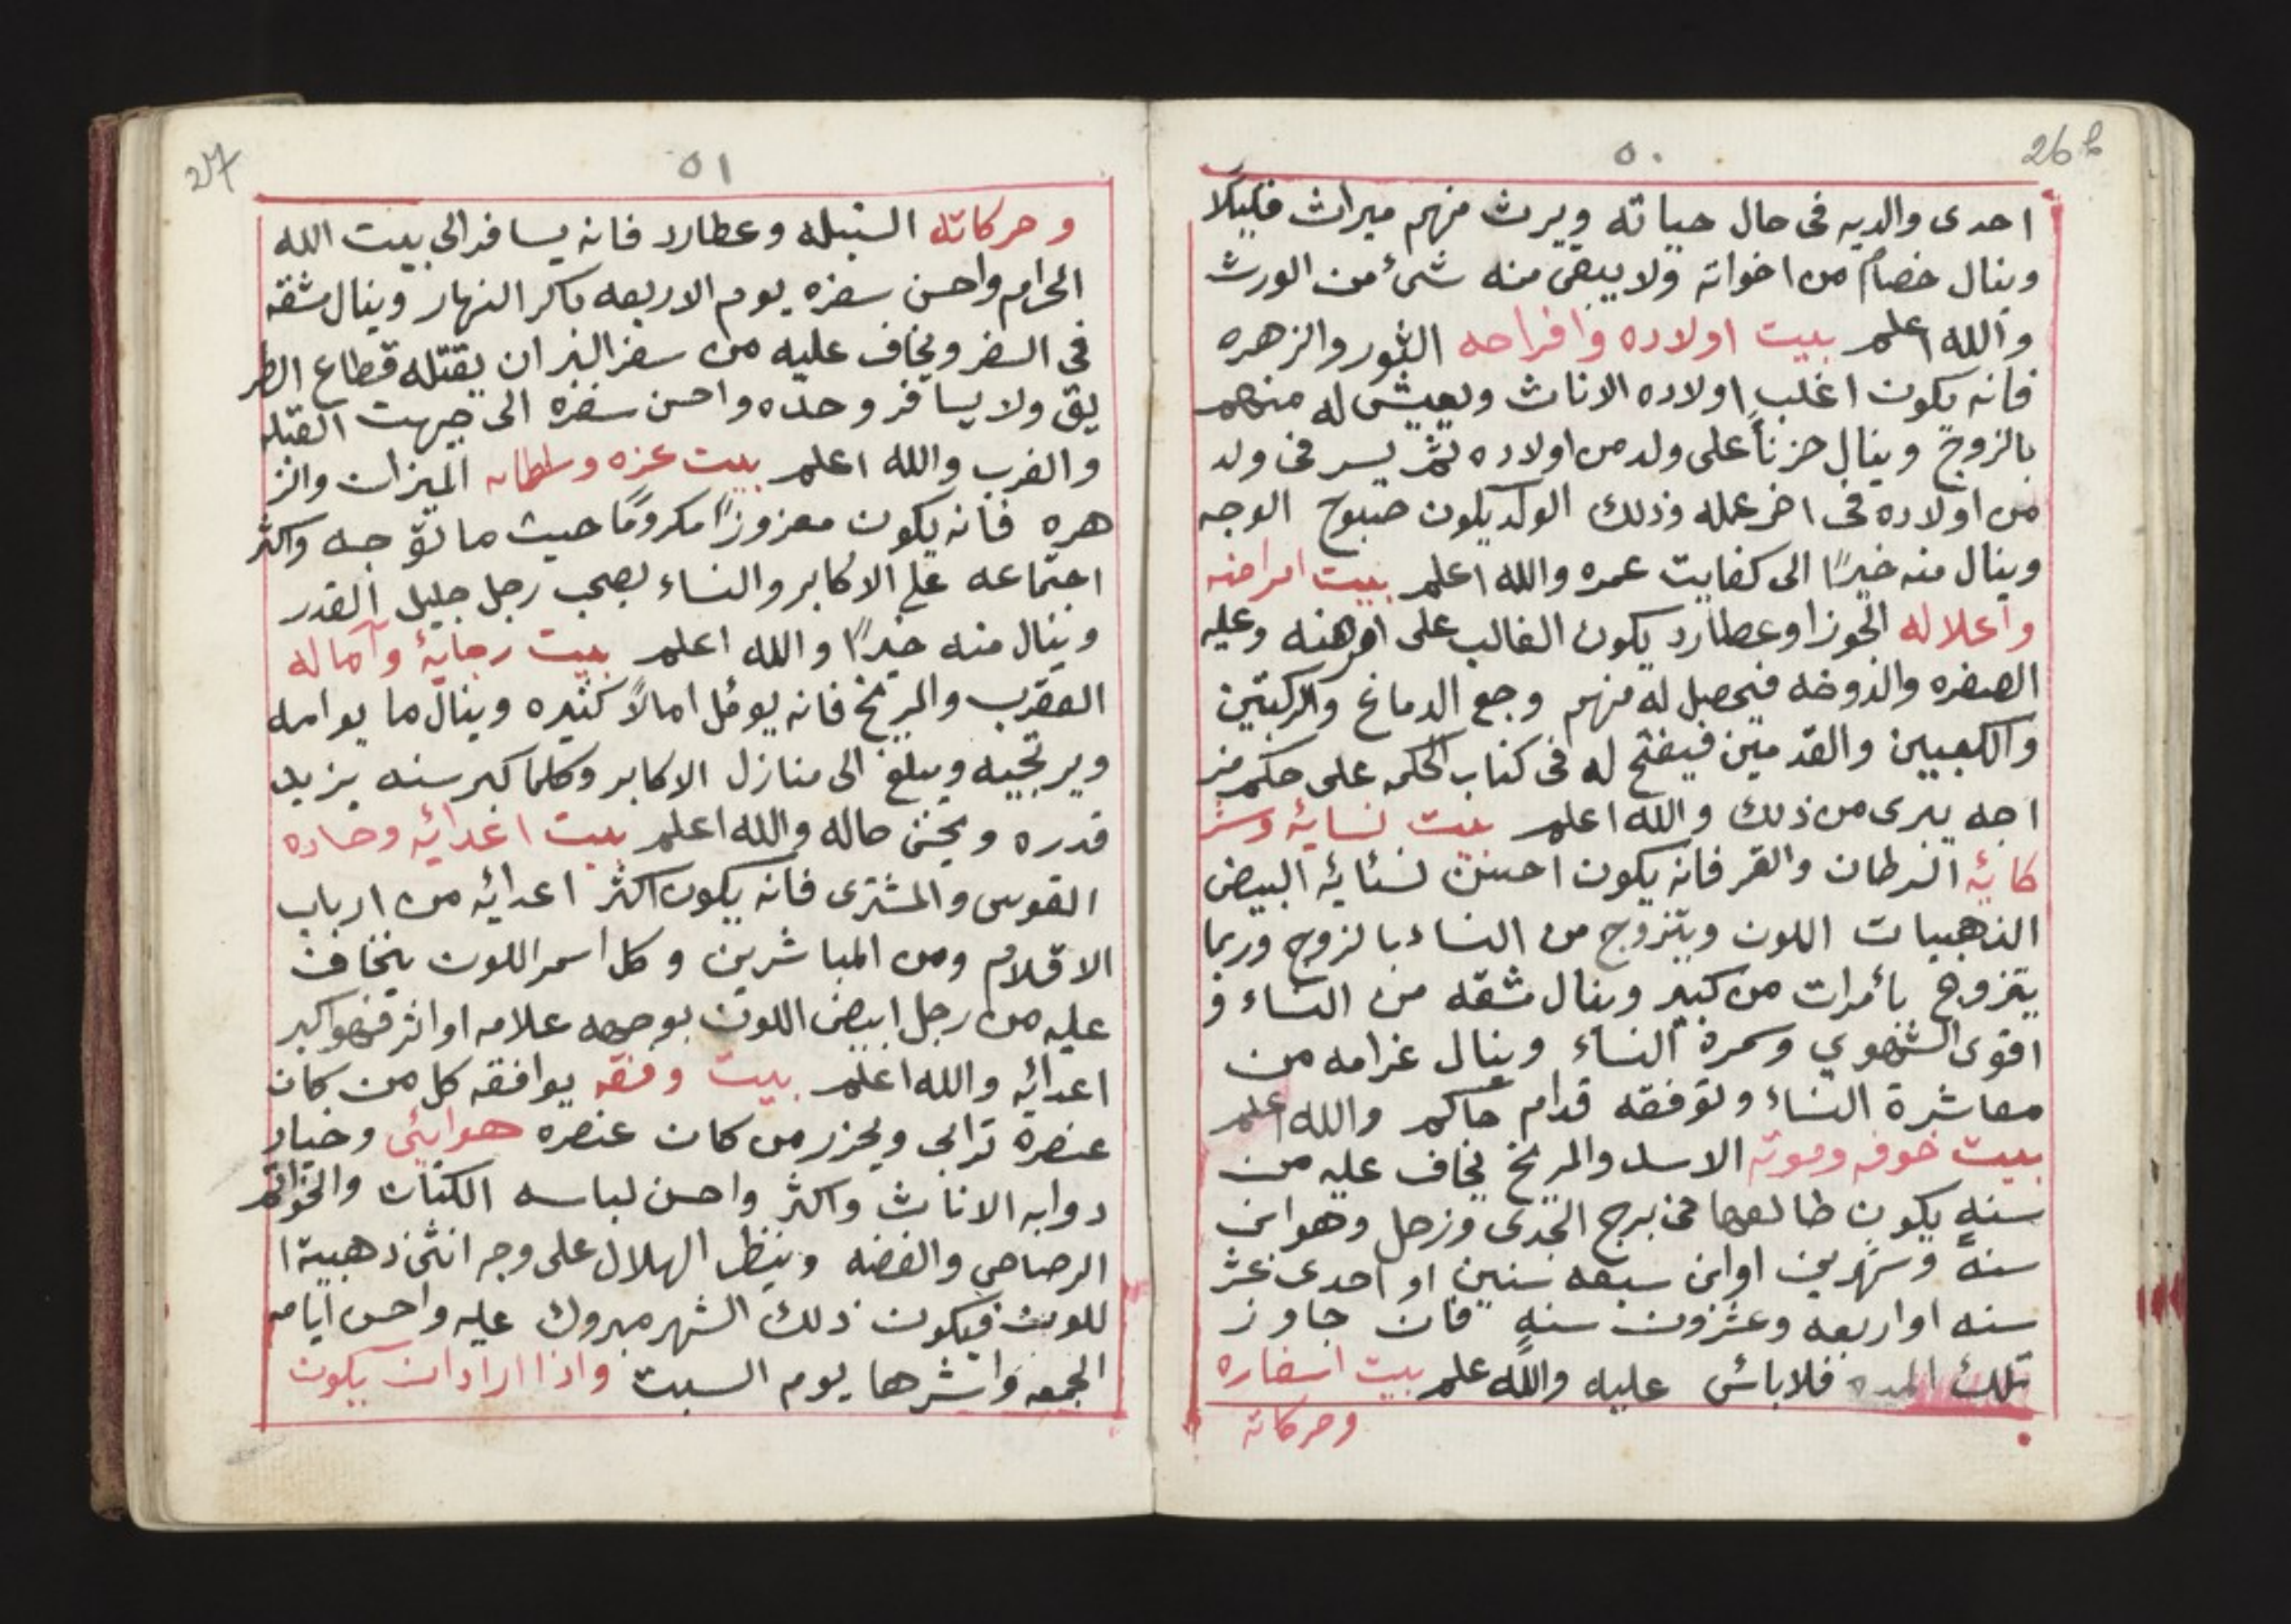 ٥٠
26 b
احدى والديه فى حال حياته ويرث منهم ميراث فليلًا
وينال خصامً من اخواته ولا يبقى منه شئ من الورث
والله اعلم بيت اولاده وافراحه الثور والزهره
فانه يكون اغلب اولاده الاناث ويعيش له منهم
بالزوج وينال حزناً على ولد من اولاده ثم يسر فى ولد
من اولاده فى اخر عمله وذلك الولد يكون صبوح الوجه
وينال منه خيرًا الى كفايت عمره والله اعلم بيت امراضه
واعلاله الجوزا وعطارد يكون الغالب على امرهنه وعليه
الصفره والدوخه فيحصل له منهم وجع الدماغ والركبتين
والكعبين والقدمين فيفتح له فى كتاب الحكمه على حكم مز
اجه يبرى من ذلك والله اعلم بيت نسايهٔ وشر
كايهٔ السرطان والقمر فانه يكون احسن نسئايهٔ البيض
الذهبيات اللون ويتزوج من النساء بالزوج وربما
يتزوج بأمرات من كبير وينال مشقه من النساء و
اقوى الشهوي وسمرة النساء وينال غرامه من
معاشرة النساء وتوفقه قدام حاكم والله اعلم
بيت خوفه وموته الاسد والمريخ يخاف عليه من
سنهٍ يكون طالعها فى برج الجدى وزحل وهو ابن
سنهً وشهرين او ابن سبعه سنين او احدى عشر
سنه او اربعه وعشرون سنهٍ فان جاوز
تلك المده فلا بأس عليه والله علم بيت اسفاره
وحركاته
٥١
27
وحركاته السنبله وعطارد فانه يسافر الى بيت الله
الحرام واحسن سفره يوم الاربعه باكر النهار وينال مشقه
فى السفر ويخاف عليه من سفر البر ان يقتله قطاع الطر
يق ولا يسافر وحده واحسن سفره الى جهت القبله
والغرب والله اعلم بيت عزه وسلطانه الميزان والز
هره فانه يكون معزوزاً مكرومًا حيث ما توجه واكثر
اجتماعه على الاكابر والنساء يصحب رجل جليل القدر
وينال منه خيرًا والله اعلم بيت رجايهٔ وآماله
العقرب والمريخ فانه يومل امالاً كثيره وينال ما يوامله
ويرتجيه ويبلغ الى منازل الاكابر وكلما كبر سنه يزيد
قدره ويحسن حاله والله اعلم بيت اعدايه وحساده
القوس والمشترى فانه يكون اكثر اعدائه من ارباب
الاقلام ومن المباشرين وكل اسمر اللون يخاف
عليه من رجل ابيض اللون بوجهه علامه او اثر فهو اكبر
اعدائه والله اعلم بيت وفقه يوافقه كل من كان
عنصرة ترابى ويحزر من كان عنصره هوايئى وخيار
دوابه الاناث واكثر واحسن لباسه الكتان والخواتم
الرصاص والفضه وينظر الهلال على وجه انثى ذهبية ا
للون فيكون ذلك الشهر مبروك عليه واحسن ايامه
الجمعه واشرها يوم السبت واذا اراد ان يكون